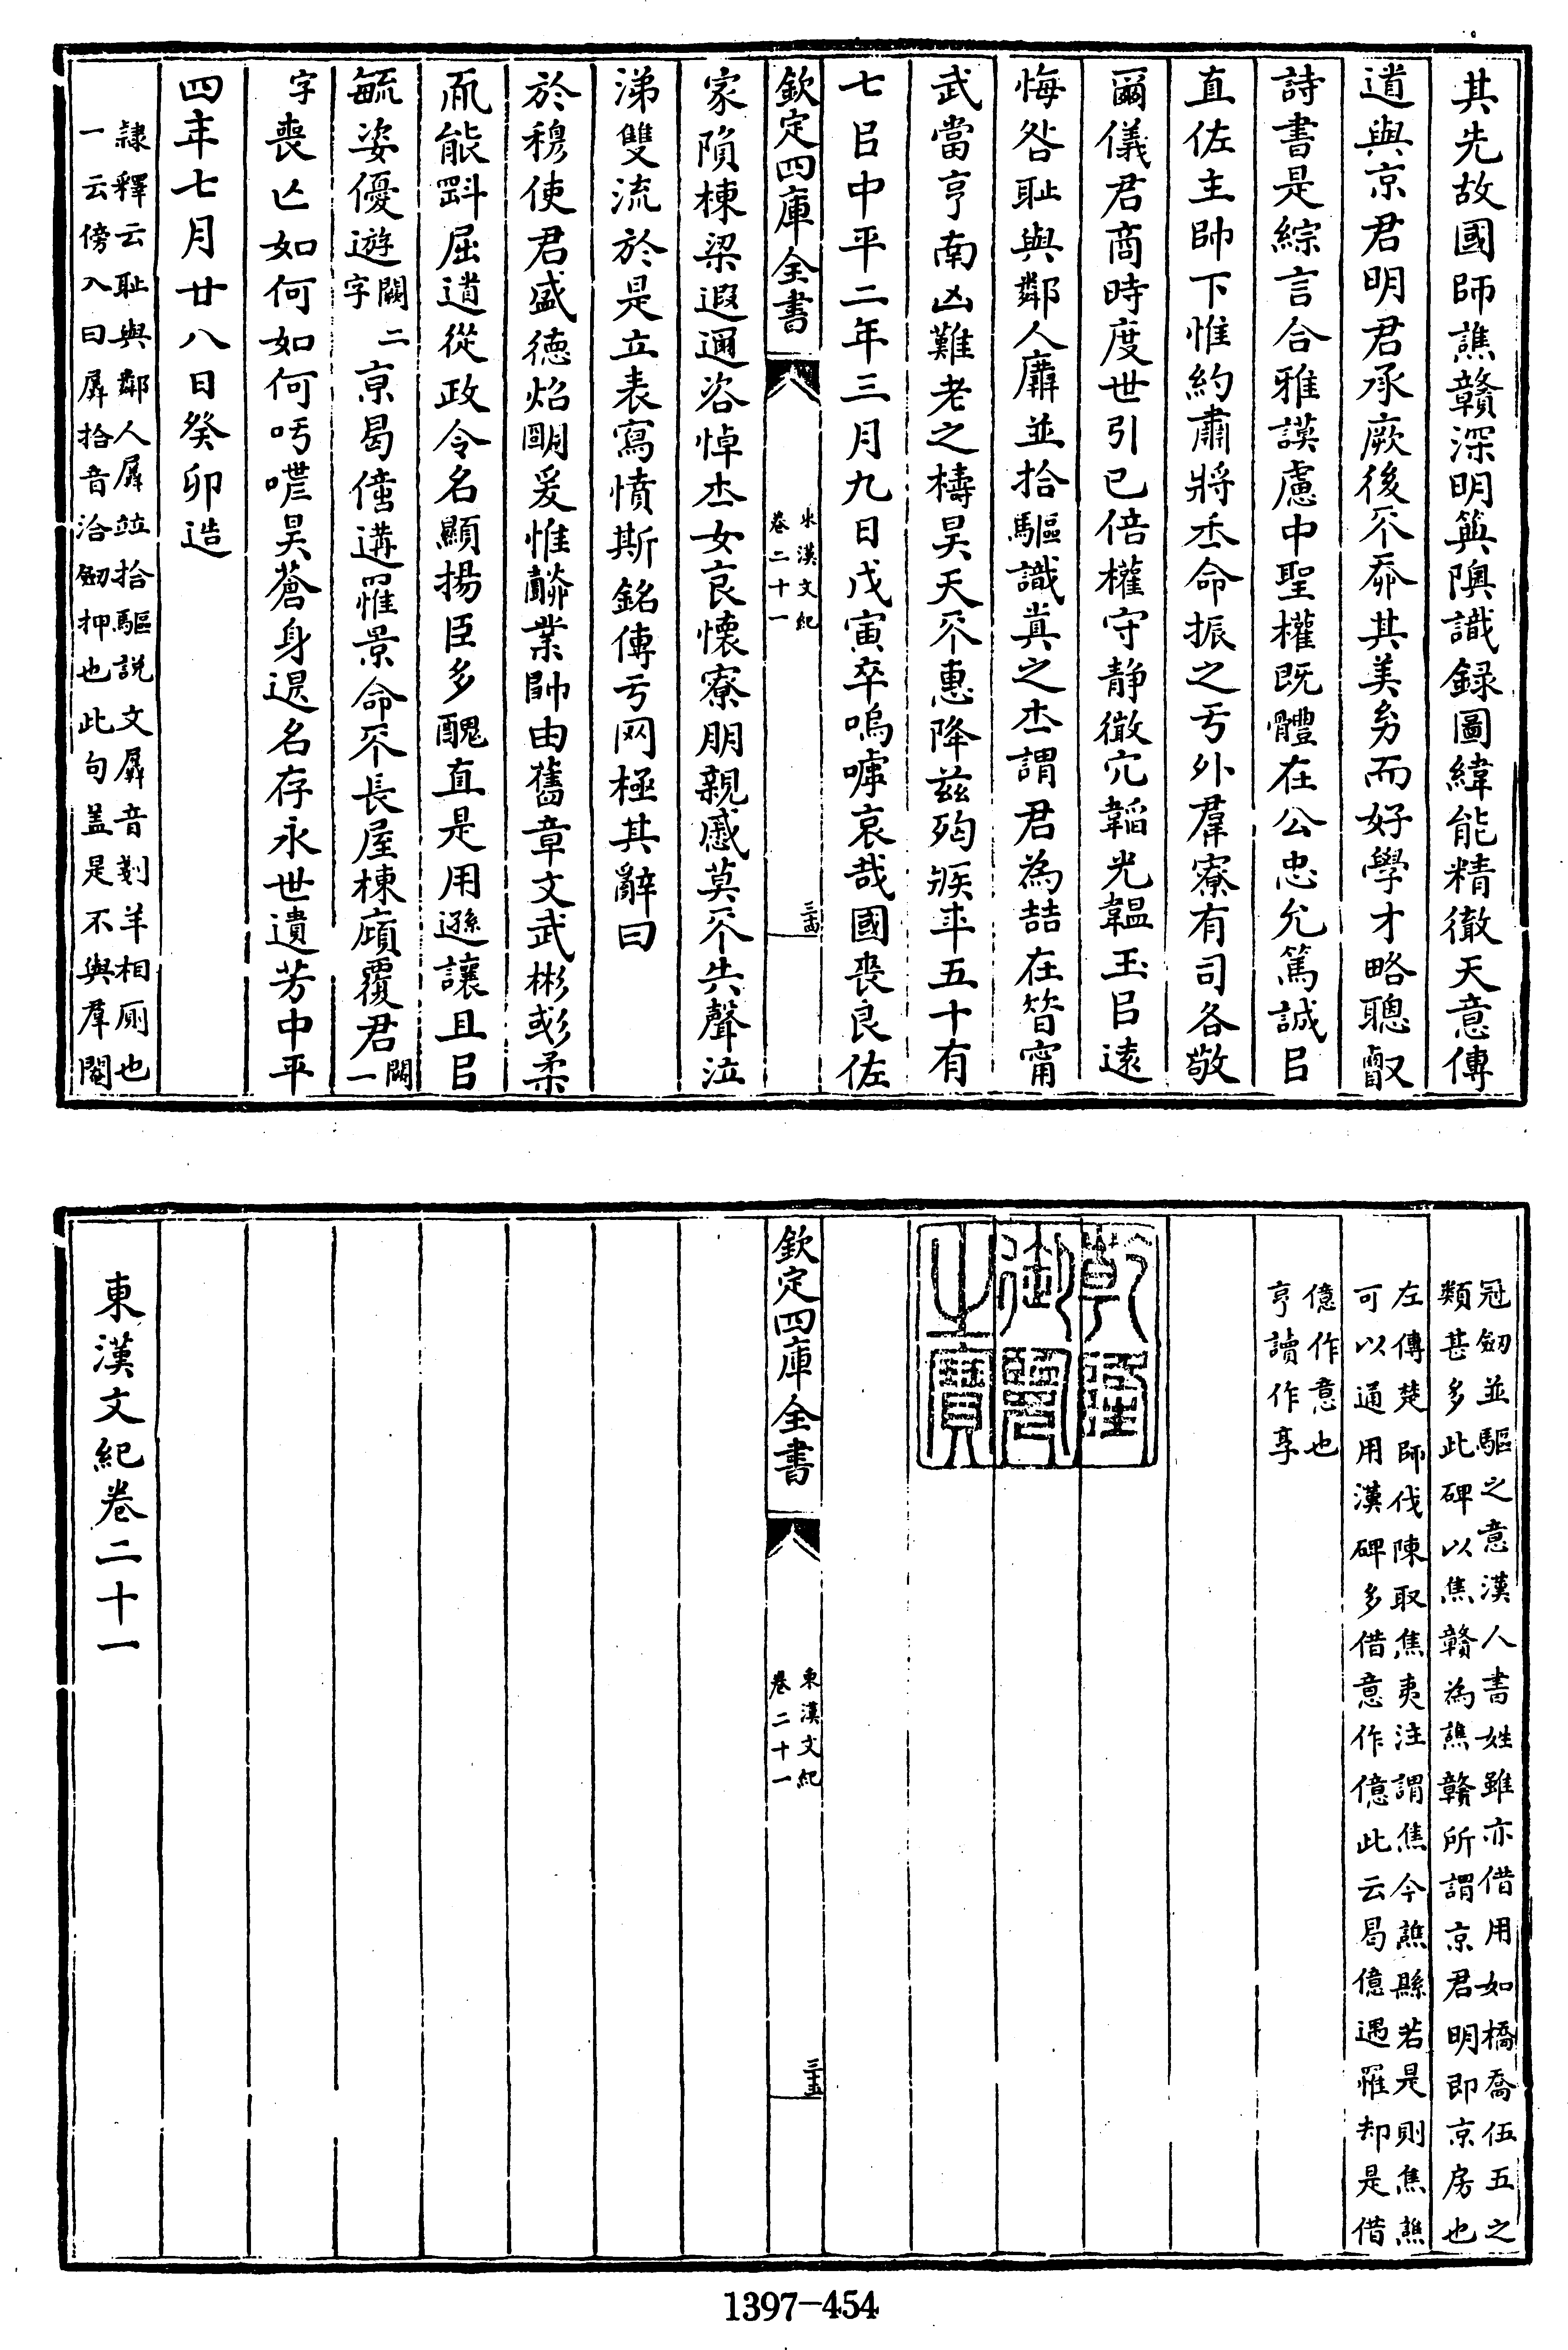 其先故國師譙贛深明箅隩識録圖緯能精徹天意傳
道與京君明君承厥後不忝其美㓜而好學才略聰叡
詩書是綜言合雅謨慮中聖權既體在公忠允篤誠㠯
直佐主帥下惟約肅將丕命振之亐外羣寮有司各敬
爾儀君商時度世引已倍權守静徹宂韜光韞玉㠯遠
悔咎耻與鄰人羼並拾驅識真之士謂君為喆在晳甯
武當亨南凶難老之檮昊天不惠降兹殃疾年五十有
七㠯中平二年三月九日戊寅卒嗚嘑哀哉國喪良佐
欽定四庫全書
東漢文紀
卷二十一
三十四
家隕棟梁遐邇咨悼士女哀懷寮朋親慼莫不失聲泣
涕雙流於是立表寫憤斯銘傳亏网極其辭曰
於穆使君盛德焰朙爰惟虧業帥由舊章文武彬彧柔
而能斷屈道從政令名顯揚臣多醜直是用遜讓且㠯
毓姿優遊闕二字京曷億遘罹景命不長屋棟傾覆君闕一
字喪亡如何如何吁嗟昊蒼身退名存永世遺芳中平
四年七月廿八日癸卯造
隷釋云耻與鄰人羼並拾驅説文羼音剗羊相厠也
一云傍入曰羼拾音洽劒押也此句盖是不與羣閹
冠劒並驅之意漢人書姓雖亦借用如橋喬伍五之
類甚多此碑以焦贛為譙贛所謂京君明即京房也
左傳楚師伐陳取焦夷注謂焦今譙縣若是則焦譙
可以通用漢碑多借意作億此云曷億遇罹却是借
億作意也
亨讀作享
乾隆
御覽
之寶
欽定四庫全書
東漢文紀
卷二十一
三十五
東漢文紀卷二十一
1397-454